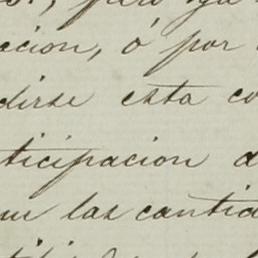 pero ya
cion, ó por
dirse esta co
ticipacion d
un las cantid